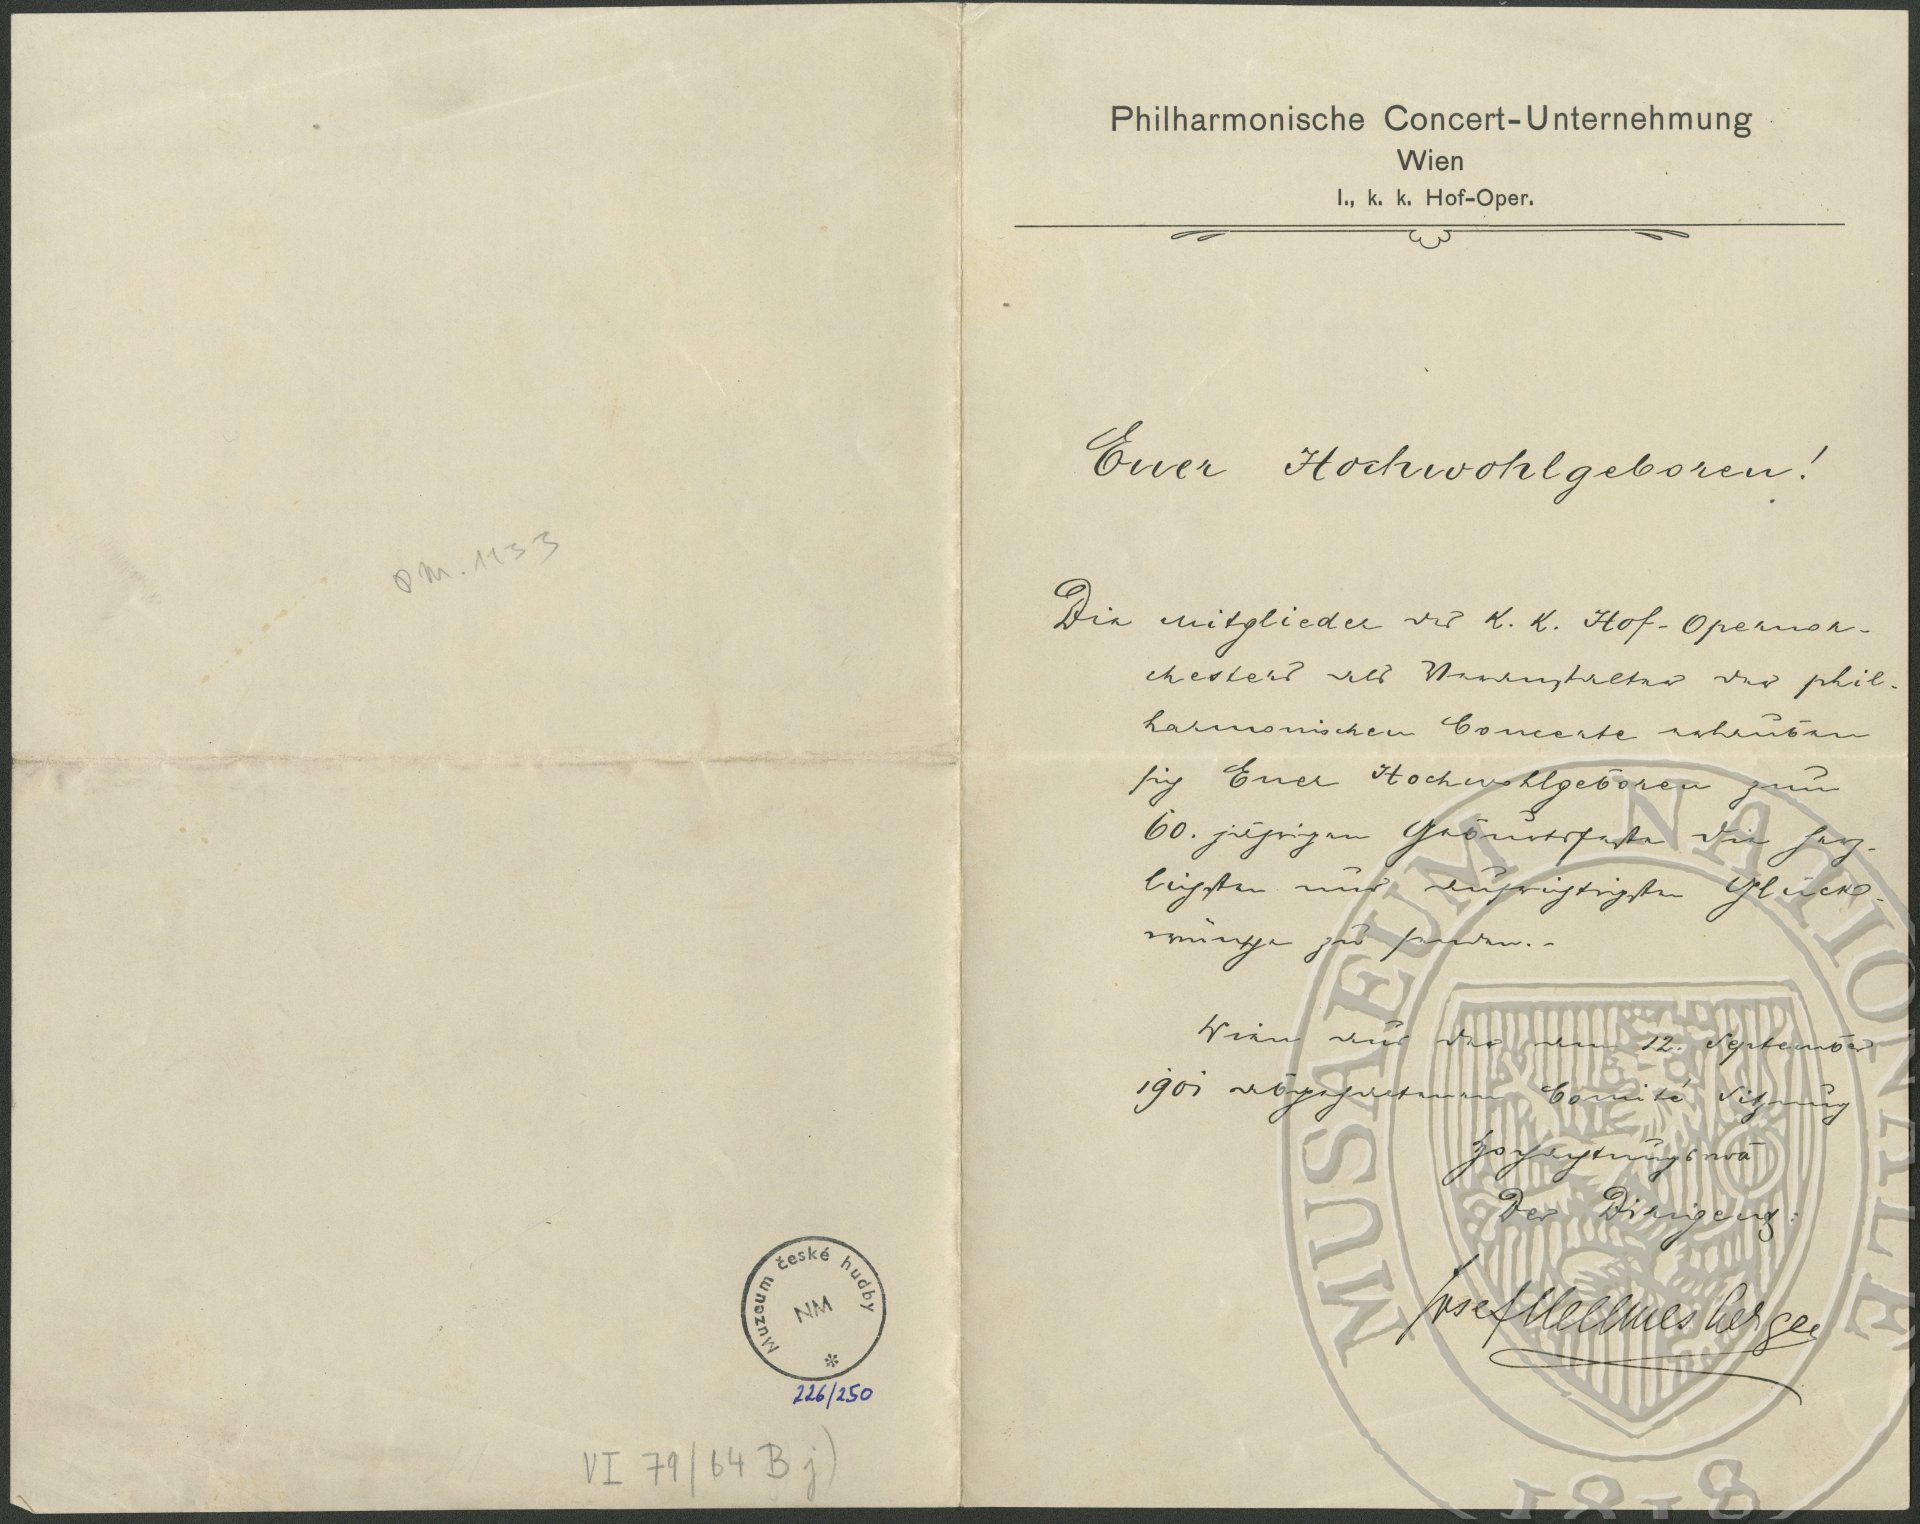 Philharmonische Concert-Unternehmung
Wien
I., k. k. Hof-Oper.
Euer Hochwohlgeboren!
Die Mitglieder des k. k. Hof-Opernor-
chesters als Veranstalter der phil-
harmonischen Concerte erlauben
sich Euer Hochwohlgeboren zum
60. jährigen Geburtsfeste die herz-
lichsten und aufrichtigsten Glück-
wünsche zu senden.-
Wien aus der am 12. September
1901 abgehaltenen Comité Sitzung
Der Dirigent:
Josef Hellmesberger
OM. 1133
Muzeum české hudby
NM
*
226/250
VI 79/64 B j)
MUSAEUM NATIONALE
1818